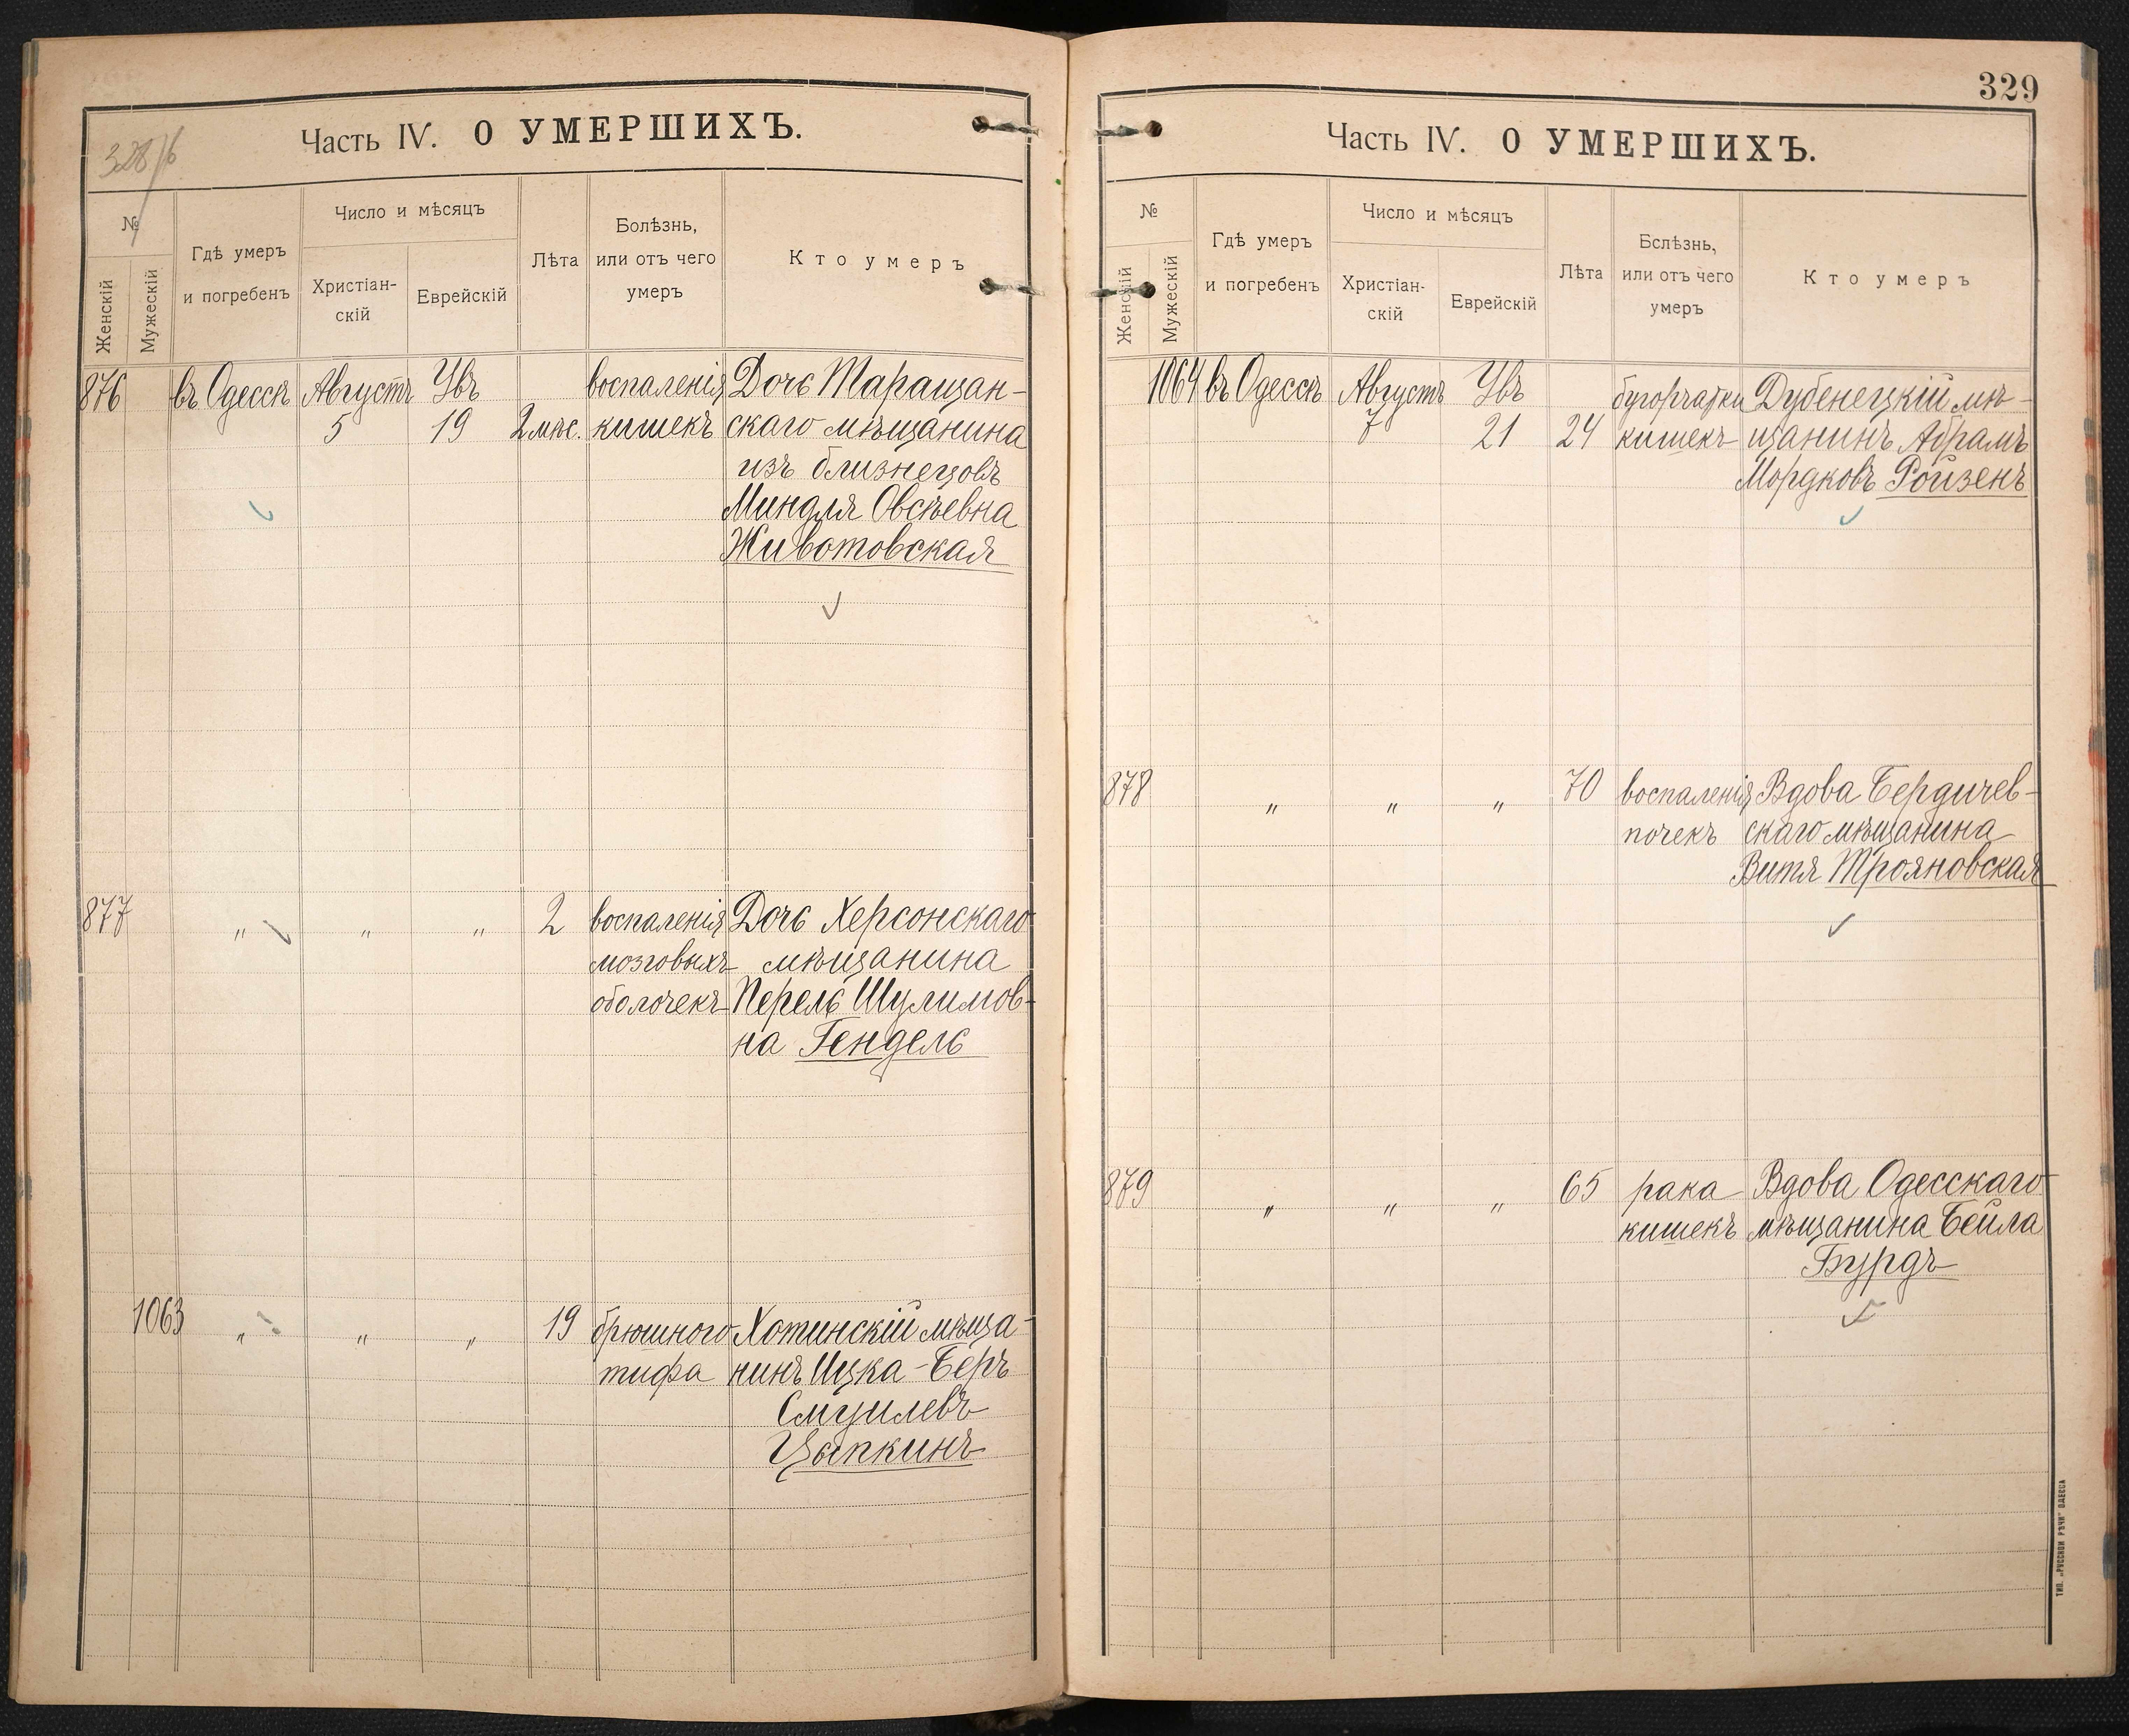 328/б
Часть IV. О УМЕРШИХЪ.
№
Женскій
Мужескій
Гдѣ умеръ
и погребенъ
Число и мѣсяцъ
Христіан-
скій
Еврейскій
Лѣта
Болѣзнь,
или отъ чего
умеръ
Кто умеръ
876 въ Одессѣ Августъ Увъ воспаленія Дочь Таращан-
5 19 2 мѣс. кишекъ скаго мѣщанина
изъ близнецовъ
Миндля Овсѣевна
Животовская
877 " " " 2 воспаленія Дочь Херсонскаго
мозговыхъ мѣщанина
оболочекъ Перель Шулимов-
на Гендель
1063 " " " 19 брюшного Хотинскій мѣща-
тифа нинъ Ицка-Беръ
Смуилевъ
Цыпкинъ
329
Часть IV. О УМЕРШИХЪ.
№
Женскій
Мужескій
Гдѣ умеръ
и погребенъ
Число и мѣсяцъ
Христіан-
скій
Еврейскій
Лѣта
Бслѣзнь,
или отъ чего
умеръ
Кто умеръ
1064 въ Одессѣ Августъ Увъ бугорчатки Дубенецкій мѣ-
7 21 24 кишекъ щанинъ Абрамъ
Мордковъ Ройзенъ
878 " " " 70 воспаленія Вдова Бердичев-
почекъ скаго мѣщанина
Витя Трояновская
879 " " " 65 рака Вдова Одесскаго
кишекъ мѣщанина Бейла
Бурдъ
ТИП. „РУССКОЙ РѢЧИ" ОДЕССА